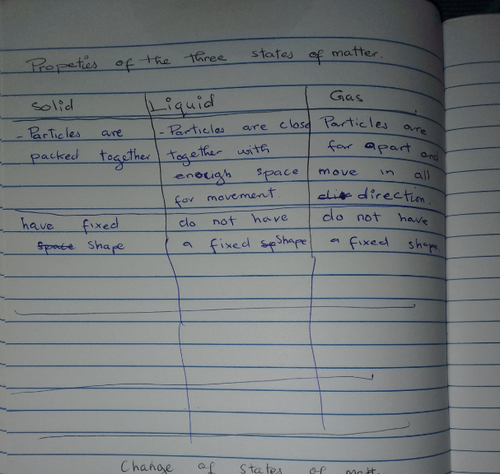 Propeties of the three states of matter.
Solid Liquid Gas
- Particles are - Particles are close Particles are
packed together together with far apart and
enough space move in all
for movement direction.
have fixed do not have do not have
shape a fixed shape a fixed shape
Change of states of matt